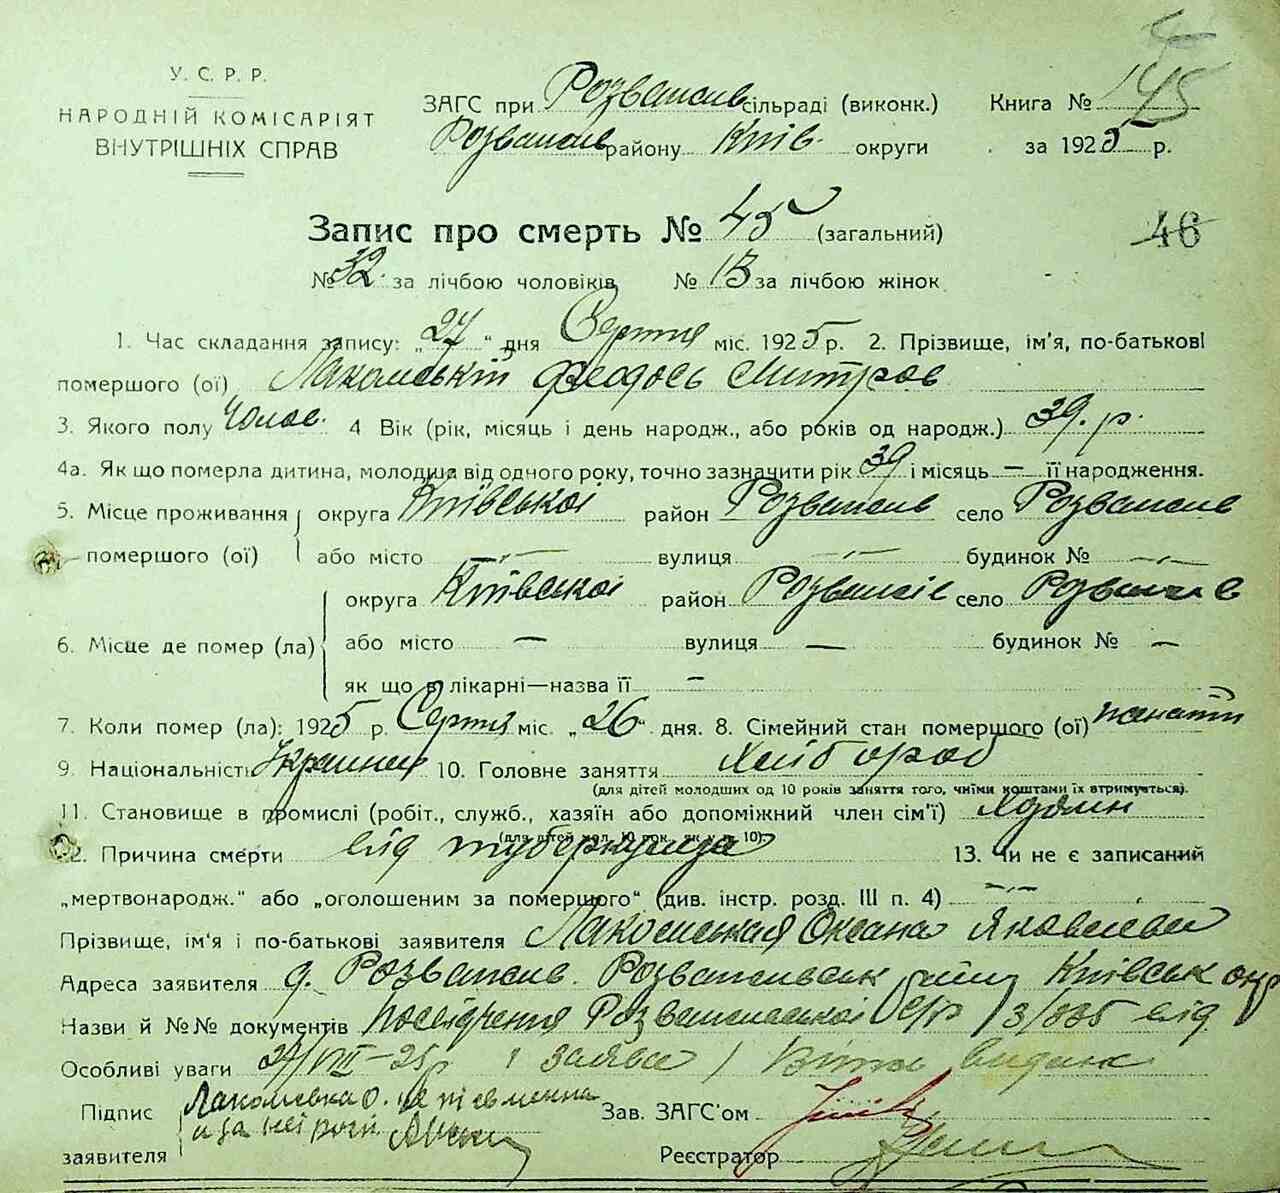 У. С. Р. Р.
НАРОДНІЙ КОМІСАРІЯТ
ВНУТРІШНІХ СПРАВ
ЗАГС при Розважів сільраді (виконк.) Книга № 145
Розважів району Київ. округи за 1925 р.
Запис про смерть № 45 (загальний) 46
№ 32 за лічбою чоловіків № 13 за лічбою жінок
1. Час складання запису: „27“ дня Серпня міс. 1925 р. 2. Прізвище, ім'я, по-батькові
помершого (ої) Лакомській Феодось Митров
3. Якого полу Чолов. 4 Вік (рік, місяць і день народж., або років од народж.) 39. р.
4а. Як що померла дитина, молодша від одного року, точно зазначити рік 39 і місяць — її народження.
5. Місце проживання округа Київської район Розважів село Розважів
помершого (ої) або місто вулиця будинок №
округа Київської район Розважів село Розважів
6. Місце де помер (ла) або місто — вулиця — будинок № —
як що в лікарні—назва її —
7. Коли помер (ла): 1925 р. Серпня міс. „26“ дня. 8. Сімейний стан помершого (ої)
9. Національність Украинец 10. Головне заняття Хлібороб
(для дітей молодших од 10 років заняття того, чиїми коштами їх втримується).
11. Становище в промислі (робіт., служб., хазяїн або допоміжний член сім'ї)
(для дітей мол. 10 рок. як у п. 10).
12. Причина смерти від туберкульоза 13. Чи не є записаний
„мертвонародж.“ або „оголошеним за померщого“ (див. інстр. розд. III п. 4)
Прізвище, ім'я і по-батькові заявителя Лакомская Оксана Яковлевна
Адреса заявителя с. Розважів. Розважівськ району Київськ окр
Назви й №№ документів Посвідчення Розважівської с/р 3/835 від
Особливі уваги 27/VIII—25р і заява / видан
Підпис Лакомська О. не письменна
заявителя а за неї
Зав. ЗАГС'ом
Реєстратор